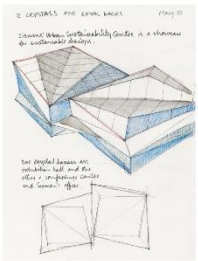 2 CRYSTALS FOR ROYAL DOCKS May 10
Siemens' Urban Sustainability Centre is a showcase
for sustainable design.
One crystal houses an
exhibition hall and the
other a conference centre
and Siemens' offices